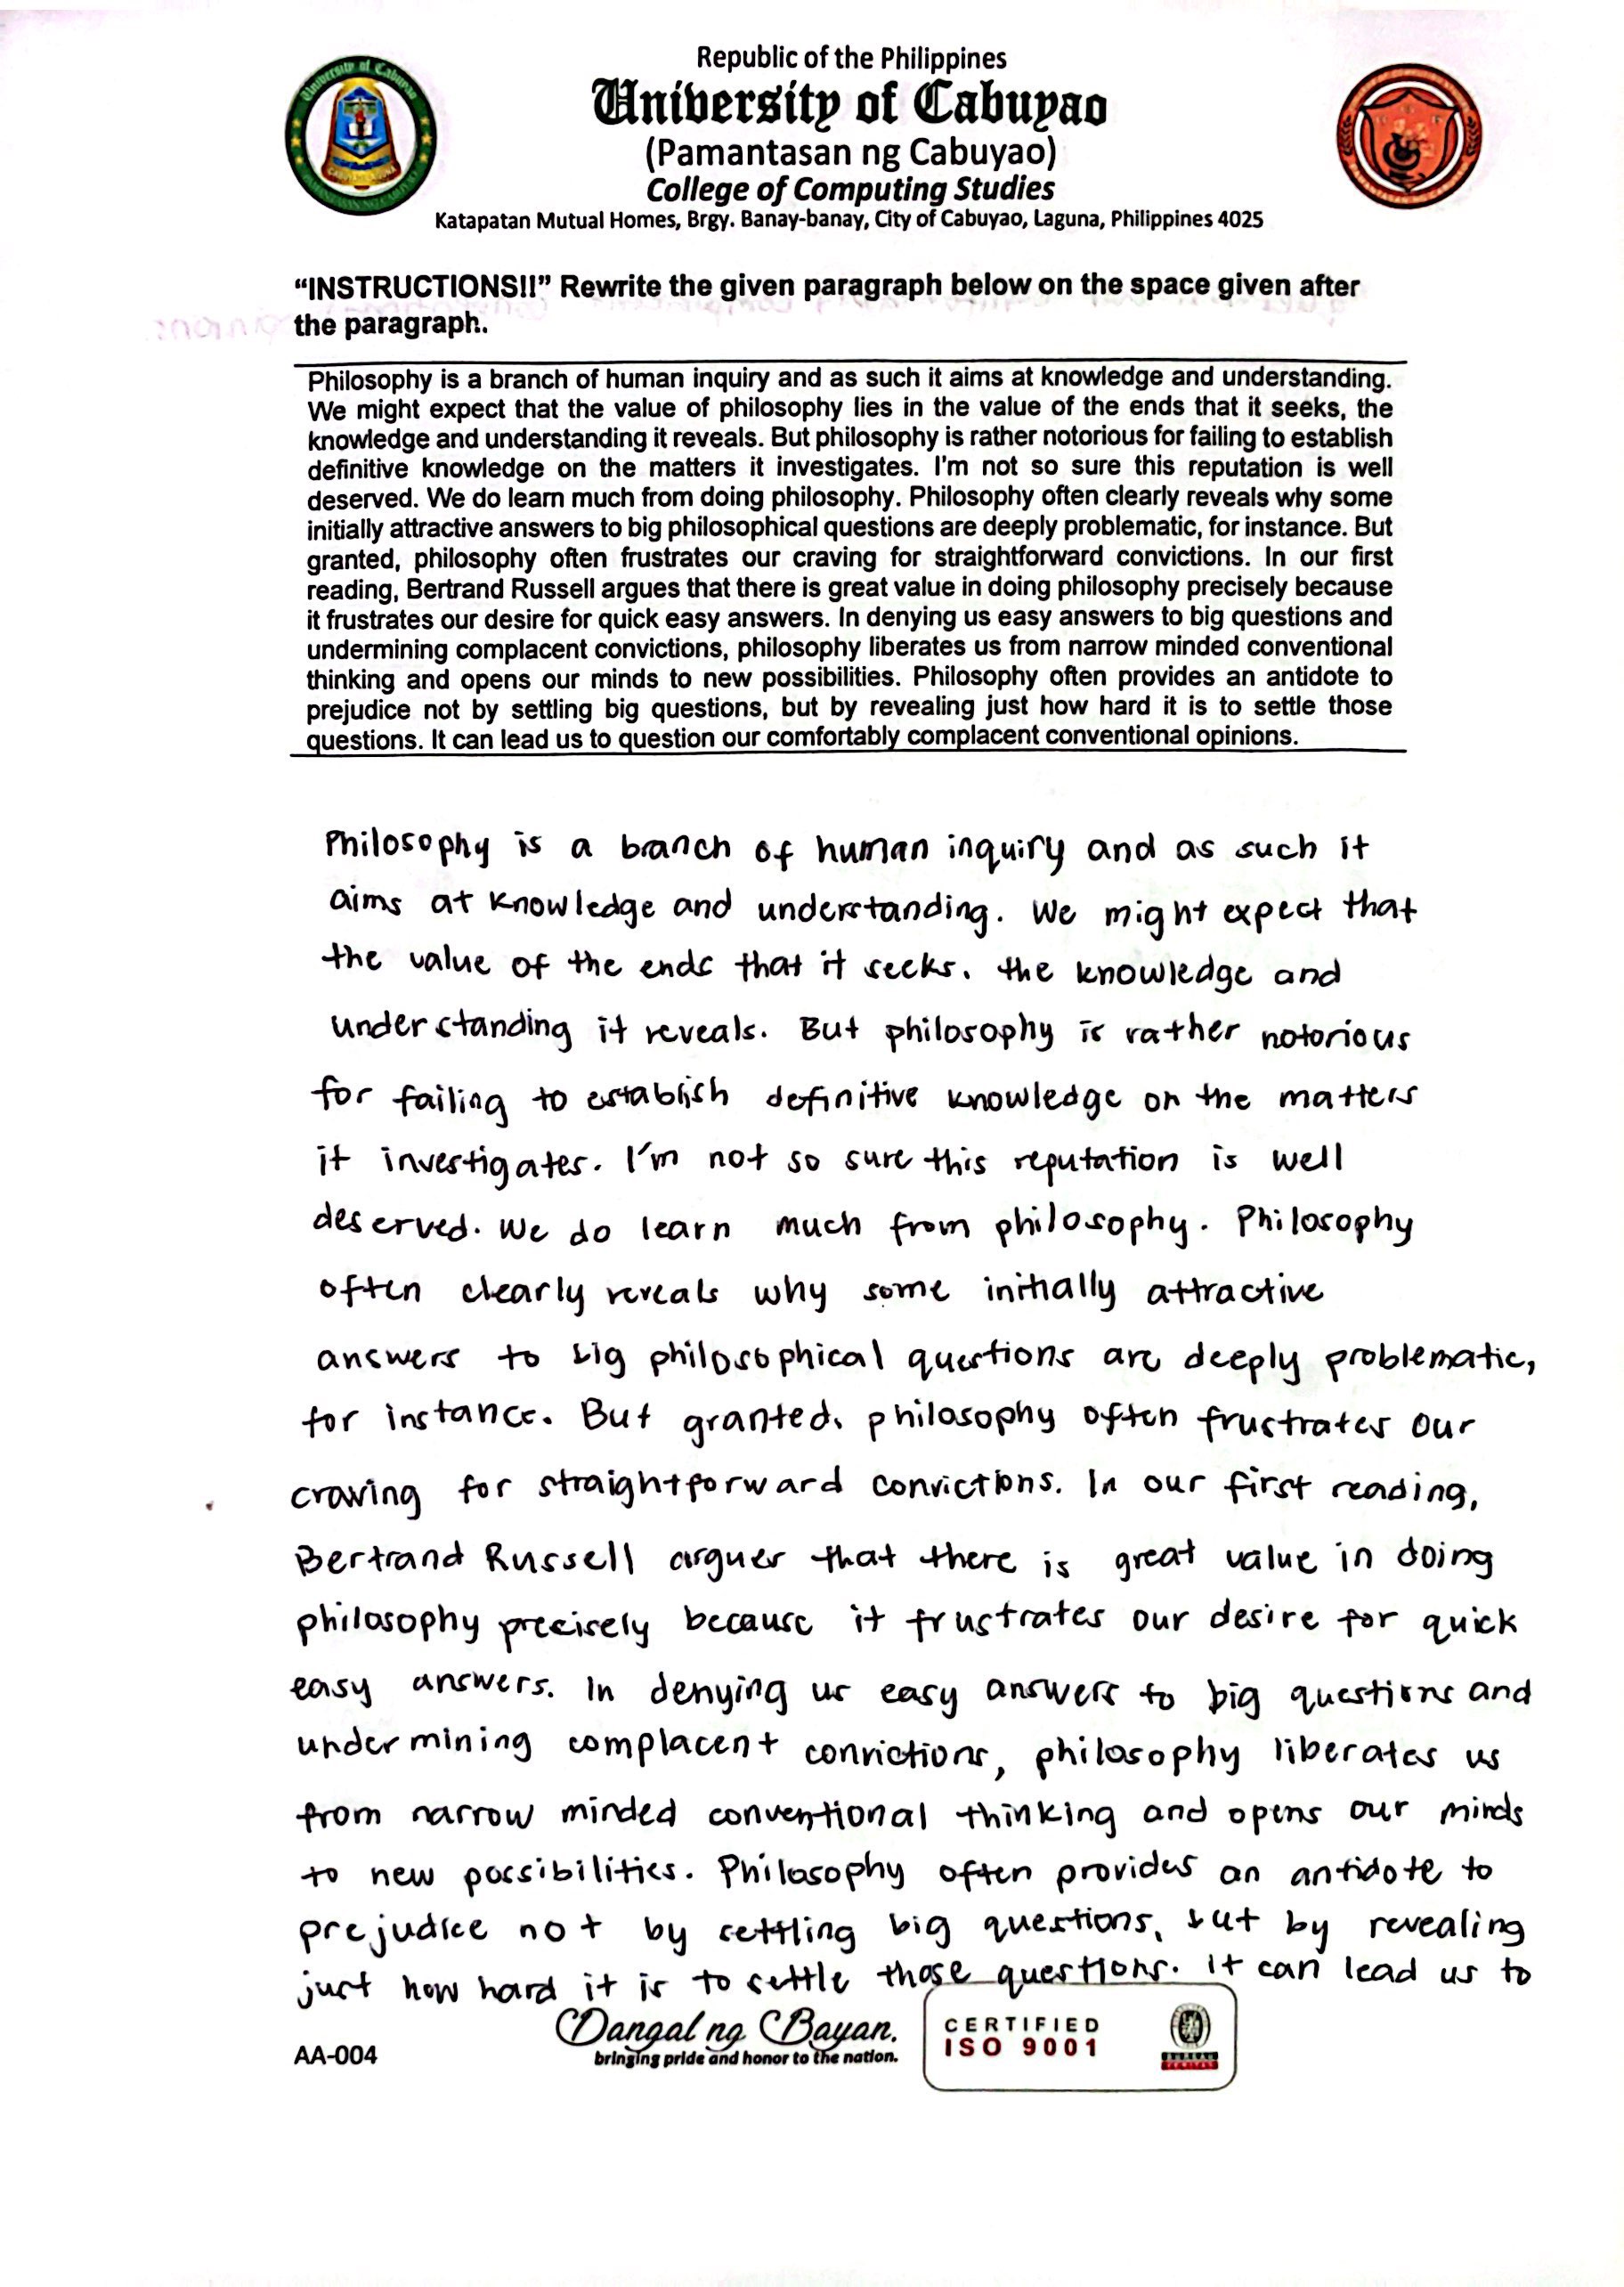 Republic of the Philippines
University of Cabuyao
(Pamantasan ng Cabuyao)
College of Computing Studies
Katapatan Mutual Homes, Brgy. Banay-banay, City of Cabuyao, Laguna, Philippines 4025
“INSTRUCTIONS!!” Rewrite the given paragraph below on the space given after
the paragraph.
Philosophy is a branch of human inquiry and as such it aims at knowledge and understanding.
We might expect that the value of philosophy lies in the value of the ends that it seeks, the
knowledge and understanding it reveals. But philosophy is rather notorious for failing to establish
definitive knowledge on the matters it investigates. I'm not so sure this reputation is well
deserved. We do learn much from doing philosophy. Philosophy often clearly reveals why some
initially attractive answers to big philosophical questions are deeply problematic, for instance. But
granted, philosophy often frustrates our craving for straightforward convictions. In our first
reading, Bertrand Russell argues that there is great value in doing philosophy precisely because
it frustrates our desire for quick easy answers. In denying us easy answers to big questions and
undermining complacent convictions, philosophy liberates us from narrow minded conventional
thinking and opens our minds to new possibilities. Philosophy often provides an antidote to
prejudice not by settling big questions, but by revealing just how hard it is to settle those
questions. It can lead us to question our comfortably complacent conventional opinions.
Philosophy is a branch of human inquiry and as such it
aims at knowledge and understanding. We might expect that
the value of the ends that it seeks, the knowledge and
understanding it reveals. But philosophy is rather notorious
for failing to establish definitive knowledge on the matters
it investigates. I'm not so sure this reputation is well
deserved. We do learn much from philosophy. Philosophy
often clearly reveals why some initially attractive
answers to big philosophical questions are deeply problematic,
for instance. But granted, philosophy often frustrates our
craving for straightforward convictions. In our first reading,
Bertrand Russell argues that there is great value in doing
philosophy precisely because it frustrates our desire for quick
easy answers. In denying us easy answers to big questions and
undermining complacent convictions, philosophy liberates us
from narrow minded conventional thinking and opens our minds
to new possibilities. Philosophy often provides an antidote to
prejudice not by settling big questions, but by revealing
just how hard it is to settle those questions. It can lead us to
AA-004
Dangal ng Bayan.
bringing pride and honor to the nation.
CERTIFIED
ISO 9001